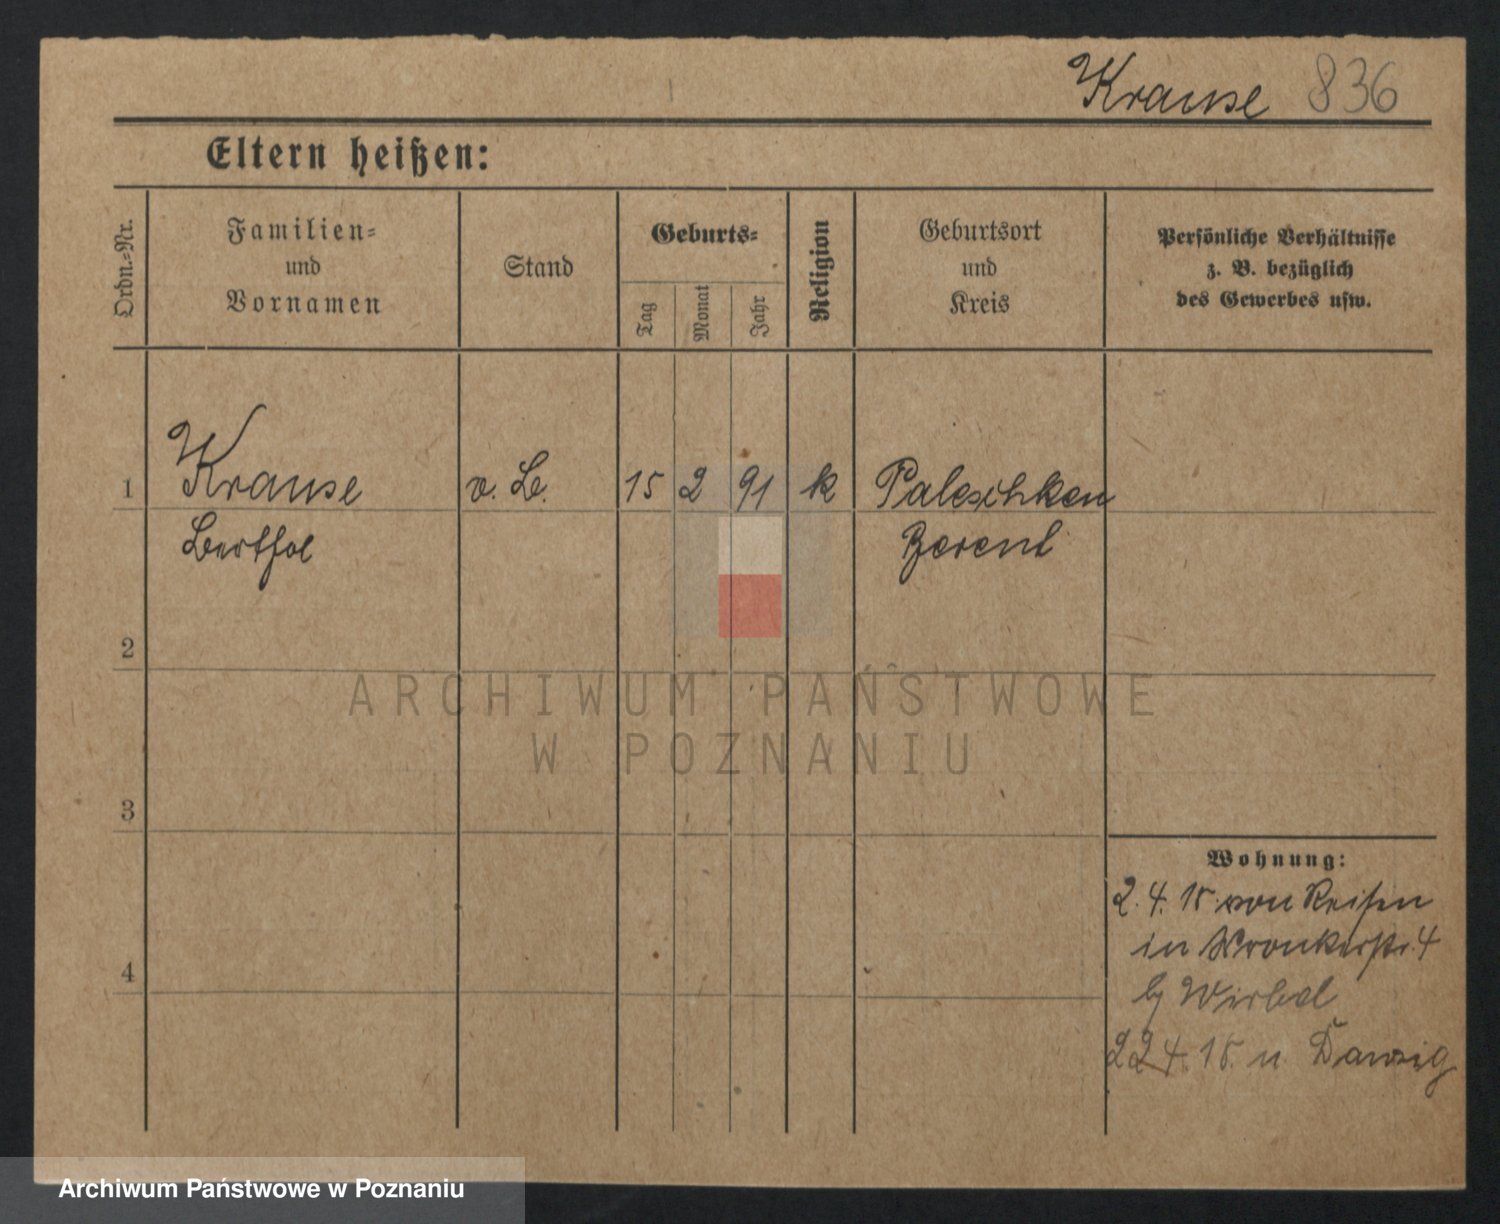 Krause 836
Eltern heißen:
Ordn.-Nr.
Familien-
und
Vornamen
Stand
Geburts-
Tag
Monat
Jahr
Religion
Geburtsort
und
Kreis
Persönliche Verhältnisse
z. B. bezüglich
des Gewerbes usw.
1 Krause v. B. 15 2 91 k Paleschken
Berent
2
3
4
Wohnung:
2. 4. 15. von Reisen
in Wronkerstr. 4
b/ Wirbel
22 4. 15. n. Danzig
ARCHIWUM PAŃSTWOWE
W POZNANIU
Archiwum Państwowe w Poznaniu